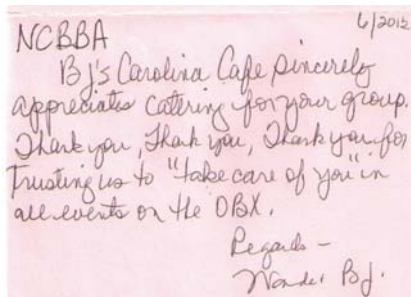 6/2012
NCBBA
BJ's Carolina Cafe sincerely
appreciates catering for your group.
Thank you, Thank you, Thank you for
trusting us to "take care of you" in
all events on the OBX.
Regards -
BJ.